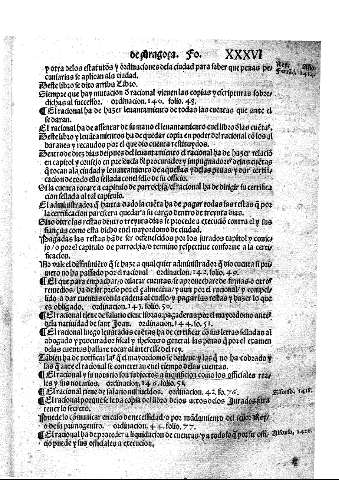 de Aragoça. Fo. XXXVI
y otra de los estatutos y ordinaciones de la ciudad para saber que penas pe-
cuniarias se aplican ala ciudad.
Deste libro se dixo arriba
Siempre que hay mutacion d racional vienen las copias y escripturas sobre
dichas al successor. ordinacion. 140. folio. 48.
¶ El racional ha de hazer levantamiento de todas las cuentas que ante el
se daran.
El racional ha de assentar de su mano el levantamiento enel libro dlas cuetas.
Deste libro y levantamientos ha de quedar copia en poder del racional de los q
boranea y recaudos por el que dio cuenta restituydos.
Dentro de diez dias despues del levantamiento el racional ha de hazer relacio
en capitol y consejo en presencia del procurador y dlas cuetas
q tocan ala ciudad y levantamiento de aquellas y dlas penas y por certifi-
cacion de todo ello sellada conel sello de su officio.
Si la cuenta tocare a capitulo de parrochia el racional ha de dirigir su certificacio
sellada al tal capitulo.
El administrador q haura dado la cueta ha de pagar todas las restas q por
la certificacion pareciera quedar a su cargo dentro de treynta dias.
Sino diere las restas dentro treynta dias se procede a execucio contra el y sus
fianças como esta dicho enel mayordomo de ciudad.
Pagadas las restas ha de ser difenecidos por los jurados capitol y conse-
jo / o por el capitulo de parrochia o termino respective conforme a la certi-
ficacion.
No vale el q se haze a qualquier administrador q dio cuenta si pri-
mero no ha passado por el racional ordinacion. 142. folio. 49.
¶ El que para enpachar o dilatar cuentas se aprovechare de firmas o otros
remedios ha de ser preso por el çalmedina / y aun por el racional y compeli-
do a dar cuenta con la cadena al cuello y pagar las restas y hazer lo que
es obligado. ordinacion. 143. folio. 50.
¶ El racional tiene de salario cient libras pagaderas por el mayordomo ante-
la natiuidad de sant Joan. ordinacion. 144. fo. 51.
¶ El racional luego levantadas cuetas ha de certificar co sus letras selladas al
abogado y procurador fiscal y thesorero general las penas q por el examen
delas cuentas hallare tocar al interesse del rey.
Tabien ha de notificar las q el mayordomo se deteuo y las q no ha cobrado y
las q ante el racional se conocen al tiempo de las cuentas.
¶ El racional y su notario son subjectos a inquisicion como los officiales rea-
les y sus notarios. ordinacion. 146. folio. 51.
¶ El racional tiene de salario mil sueldos. ordinacion. 42. fo. 76.
¶ El racional porque le es dada copia del libro de los actos de los Jurados jura
tener lo secreto.
puede lo comunicar en caso de necessidad / o por madamiento del señor Rey /
o de su primogenito. ordinacion. 46. folio. 77.
¶ El racional ha de proceder a liquidacion de cuentas y a todo lo q por su offi-
cio puede y sus officiales a execucion.
Alfonso, 1418.
Alfonso, 1420.